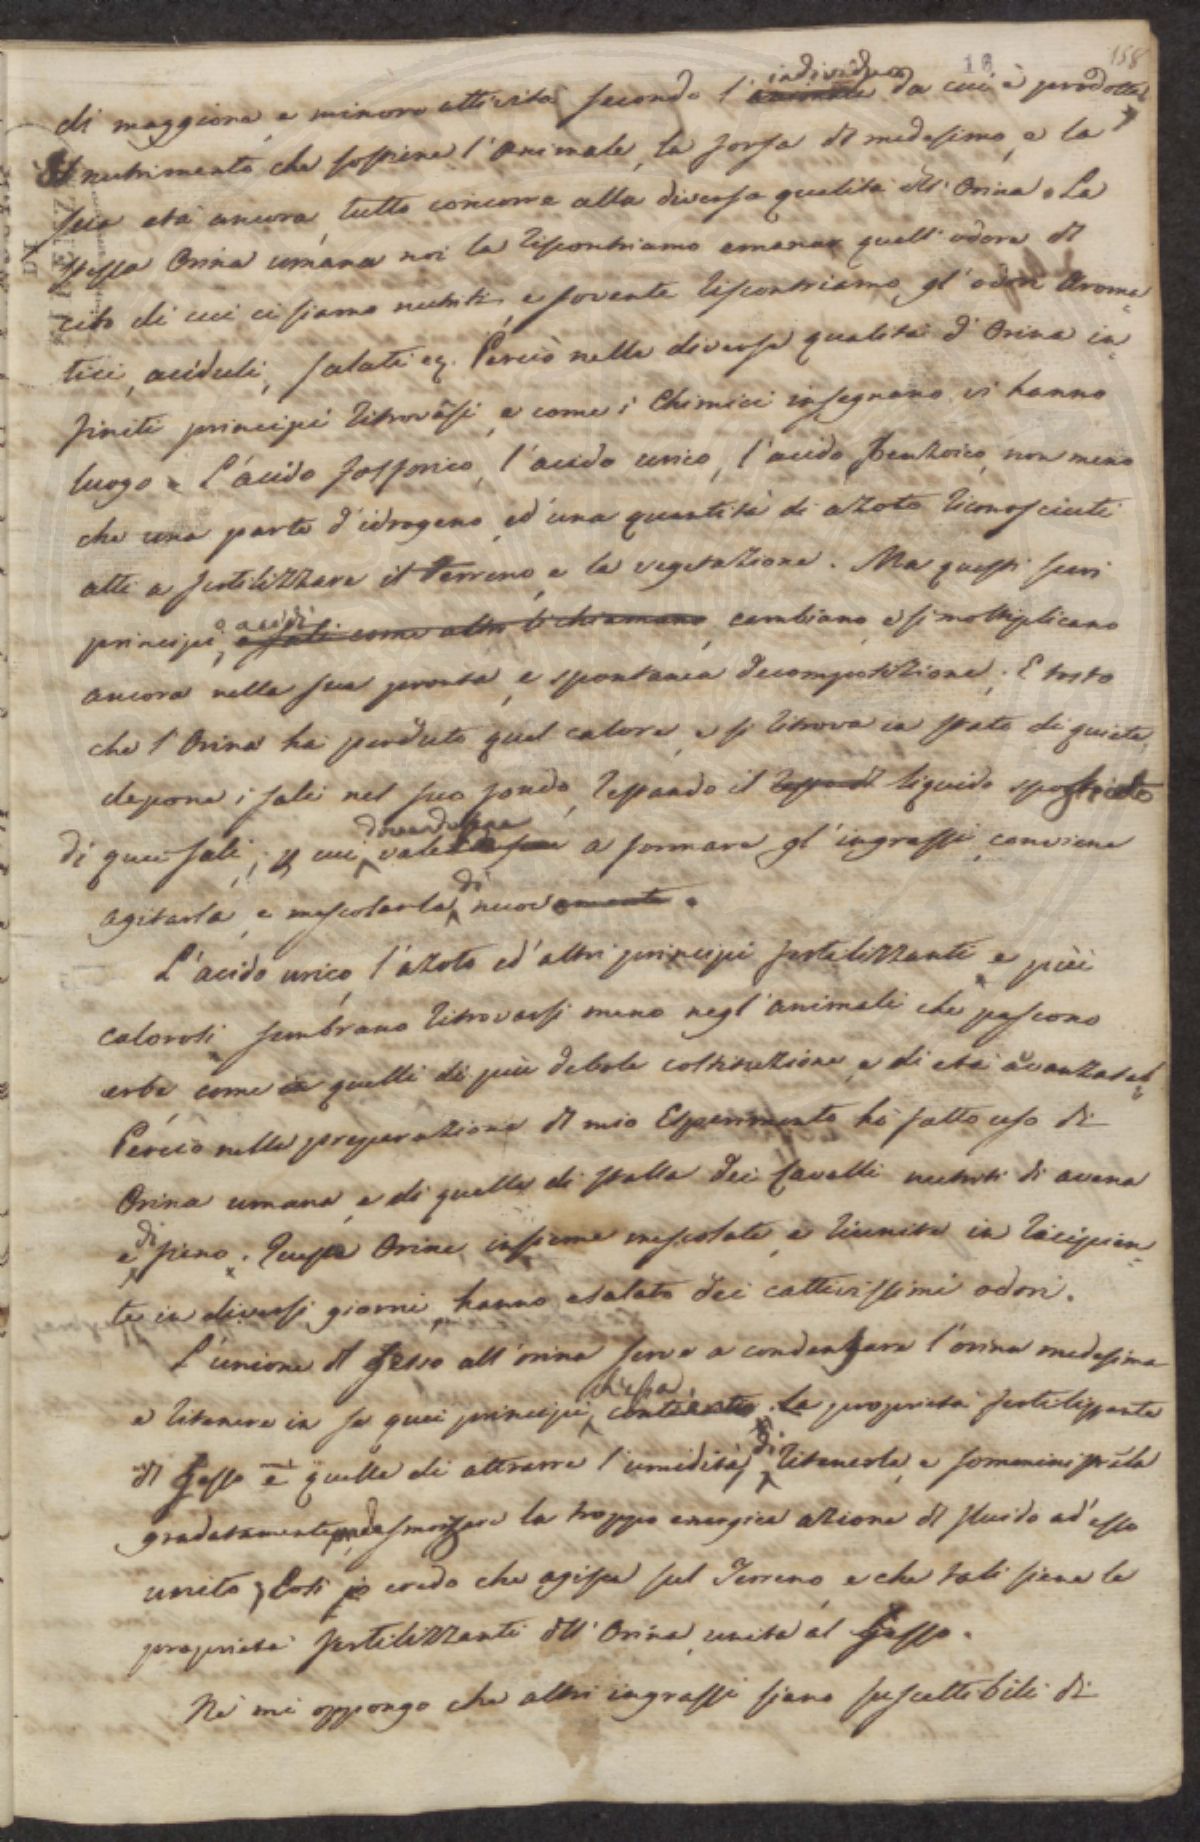 18 158
di maggiore, e minore attività secondo l'animale individuo da cui è prodotta,
Il nutrimento che sostiene l'animale, la forza dl medesimo, e la
sua età ancora, tutto concorre alla diversa qualità dll' Orina. La
stessa Orina umana noi la riscontriamo emanar quell' odore dl
cibo di cui ci siamo nutriti, e sovente riscontriamo gl' odori Aroma=
tici, aciduli, salati ec. Perciò nelle diverse qualità d' Orina in=
finiti principj ritrovansi, e come i Chimici insegnano vi hanno
luogo = L'acido fosforico, l'acido urico, l'acido benzoico, non meno
che una parte d'idrogeno, ed una quantità di azoto riconosciuti
atti a fertilizzare il Terreno, e la vegetazione. Ma questi suoi
principj, o acidi o sali come altri li chiamano, cambiano, e si moltiplicano
ancora nella sua pronta, e spontanea decomposizione. E tosto
che l'Orina ha perduto quel calore, e si ritrova in stato di quiete,
depone i sali nel suo fondo, restando il liquido spogliato
di quei sali; p cui dovendosene valersene a formare gl'ingrassi conviene
agitarla, e mescolarla di nuovamente.
L'acido urico, l'azoto ed altri principj fertilizzanti, e più
calorosi sembrano ritrovarsi meno negl'animali che pascono
erbe, come in quelli di più debole costituzione, e di età avanzata.
Perciò nella preparazione dl mio Esperimento ho fatto uso di
Orina umana, e di quella di stalla dei Cavalli nutriti di avena
e di fieno. Queste Orine insieme mescolate, e riunite in recipien=
te in diversi giorni, hanno esalato dei cattivissimi odori.
L'unione dl Gesso all'orina serve a condensare l'orina medesima
e ritenere in se quei principj, ch'essa contiene. La proprietà fertilizzante
dl Gesso è quella di attrarre l'umidità, di ritenerla, e somministrarla
gradatamente, e smorzare la troppo energica azione dl fluido ad esso
unito, Così io credo che agisca sul Terreno, e che tali siano le
proprietà fertilizzanti dll' Orina unita al Gesso.
Nè mi oppongo che altri ingrassi siano suscettibili di